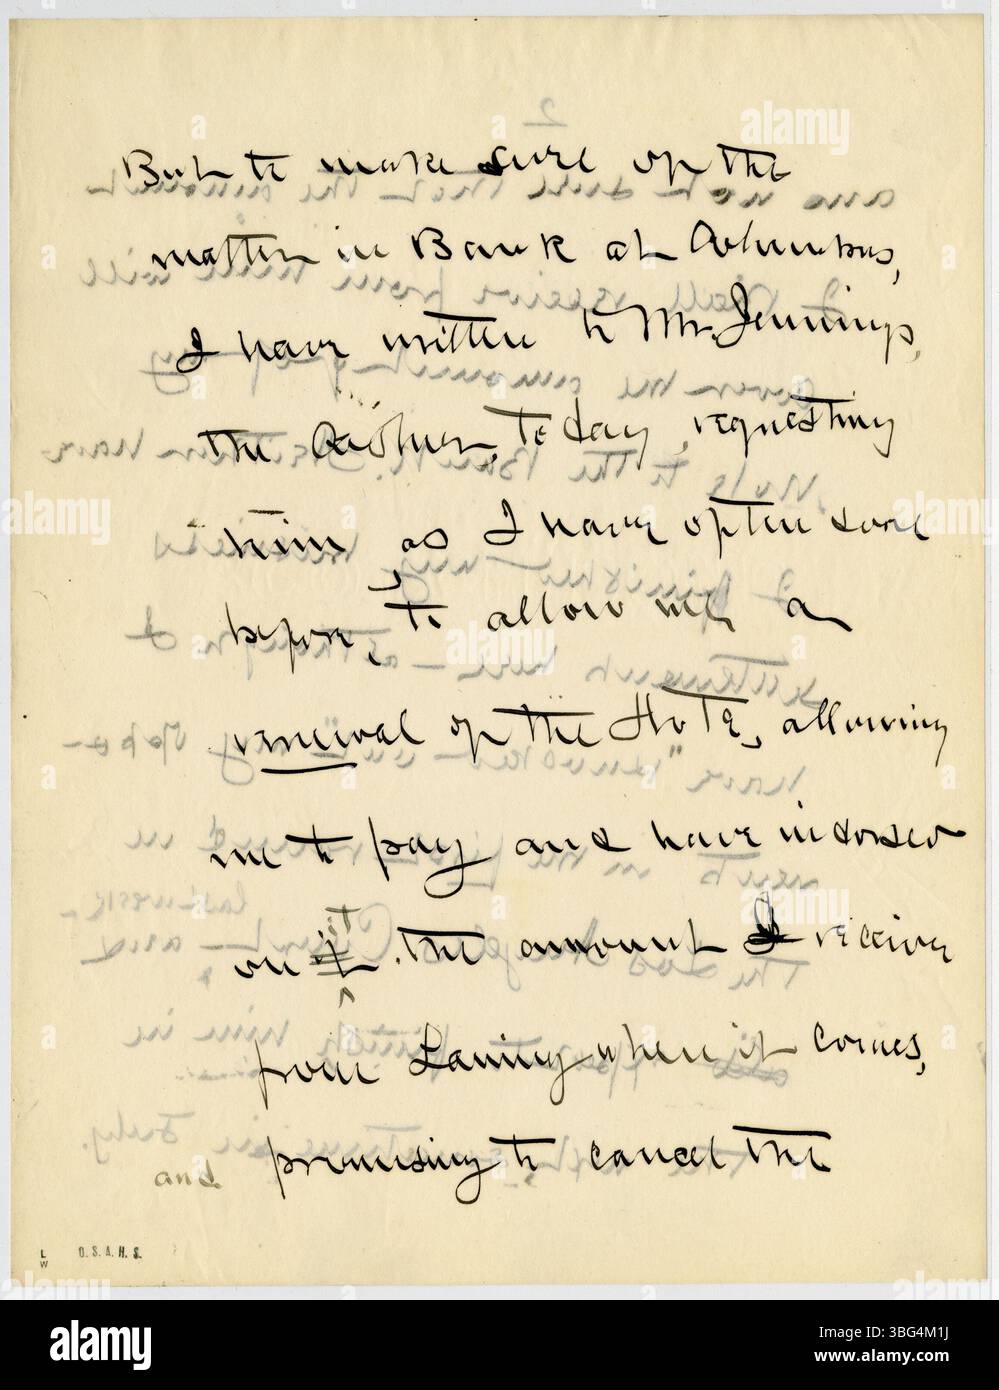 But to make sure of the
matter in Bank at Columbus,
I have written to Mr. Jennings,
the Cashier, today, requesting
him, as I have often done
before, to allow me a
renewal of the Note, allowing
me to pay and have indorsed
on it the amount I receive
from Laning when it comes,
and promising to cancel the
L W O. S. A. H. S.
alamy
Image ID: 3BG4M1J
www.alamy.com